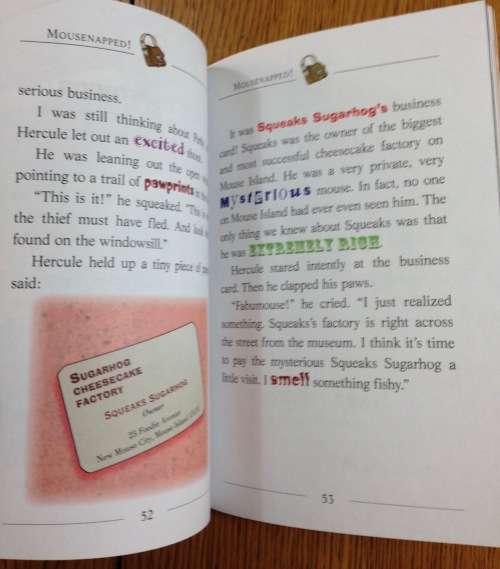 MOUSENAPPED!
serious business.
I was still thinking about
Hercule let out an excited
He was leaning out the open
pointing to a trail of pawprints
"This is it!" he squeaked. "This is
the thief must have fled. And look
found on the windowsill."
Hercule held up a tiny piece of
said:
SUGARHOG
CHEESECAKE
FACTORY
SQUEAKS SUGARHOG
Owner
25 Foodie Avenue
New Mouse City, Mouse Island
52
MOUSENAPPED!
It was Squeaks Sugarhog's business
card! Squeaks was the owner of the biggest
and most successful cheesecake factory on
Mouse Island. He was a very private, very
Mysterious mouse. In fact, no one
on Mouse Island had ever even seen him. The
only thing we knew about Squeaks was that
he was EXTREMELY RICH.
Hercule stared intently at the business
card. Then he clapped his paws.
"Fabumouse!" he cried. "I just realized
something. Squeaks's factory is right across
the street from the museum. I think it's time
to pay the mysterious Squeaks Sugarhog a
little visit. I smell something fishy."
53